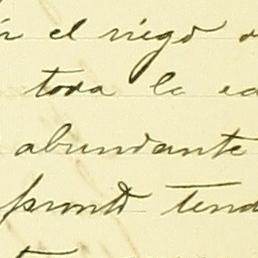 el riego
toda la
abundante
pronto tend